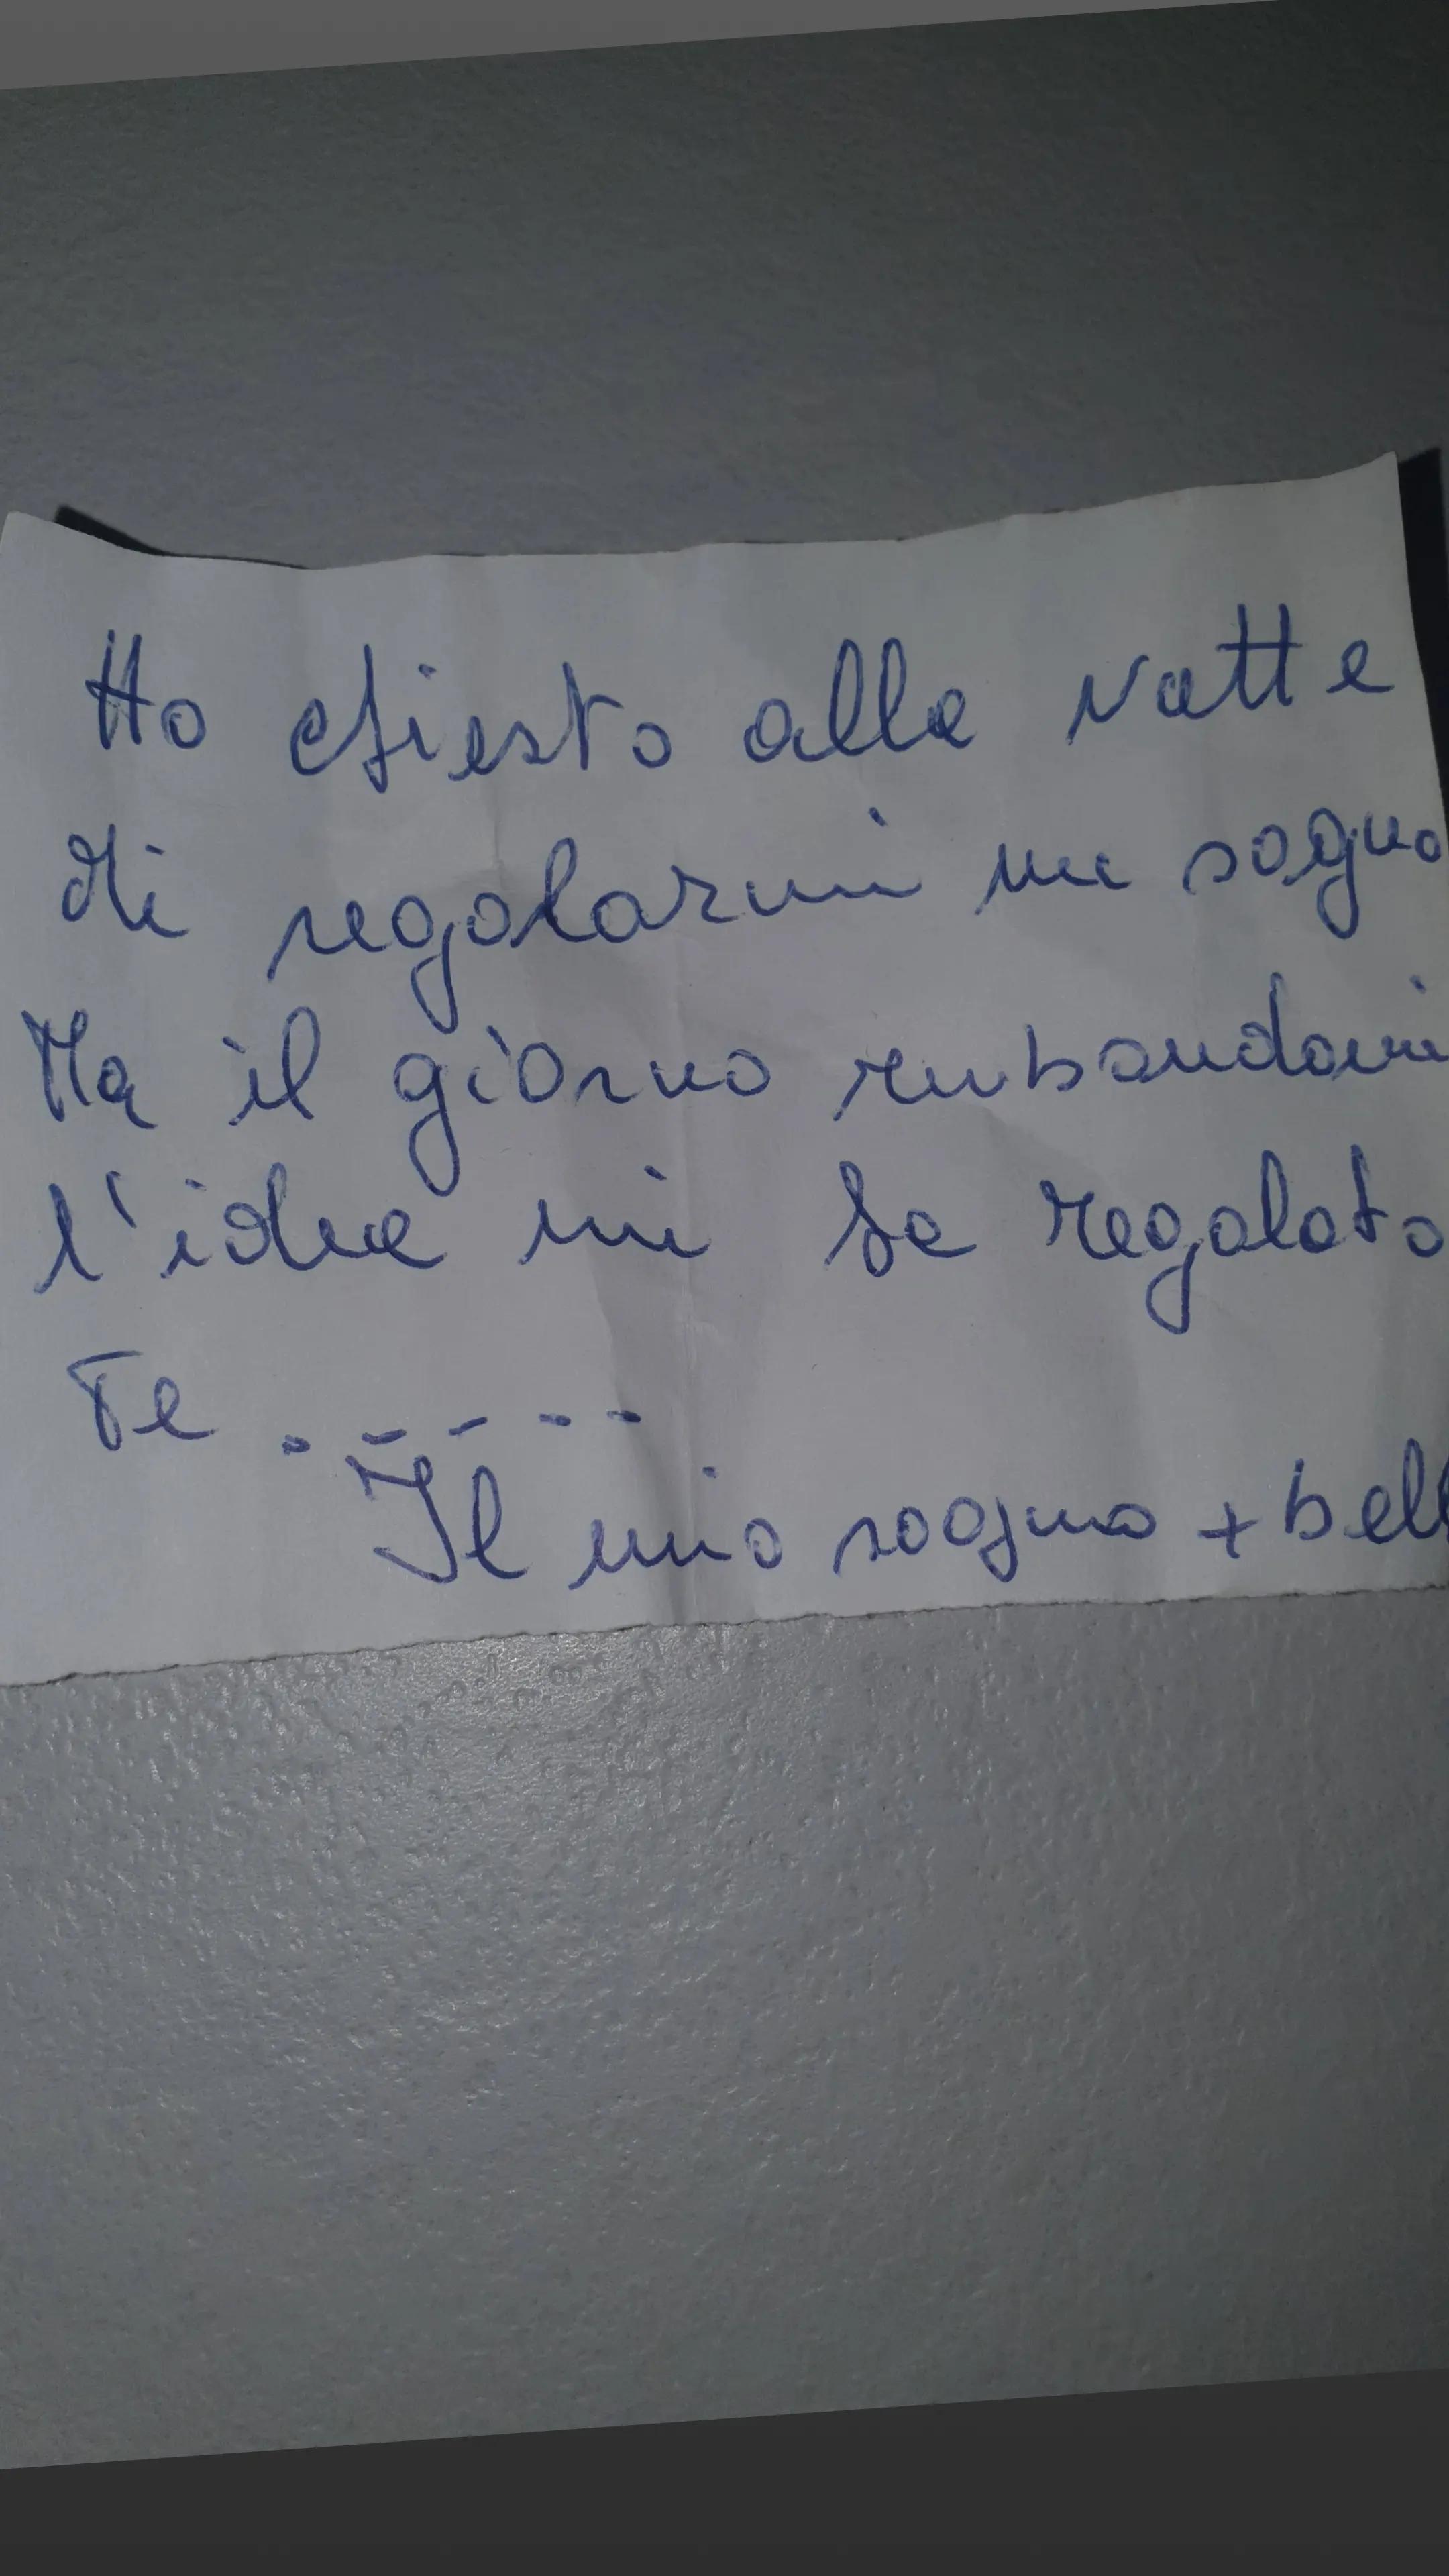 Ho chiesto alla notte
di regalarmi un sogno
Ma il giorno rubandomi
l'idea mi ha regalato
Te .....
Il mio sogno + bell